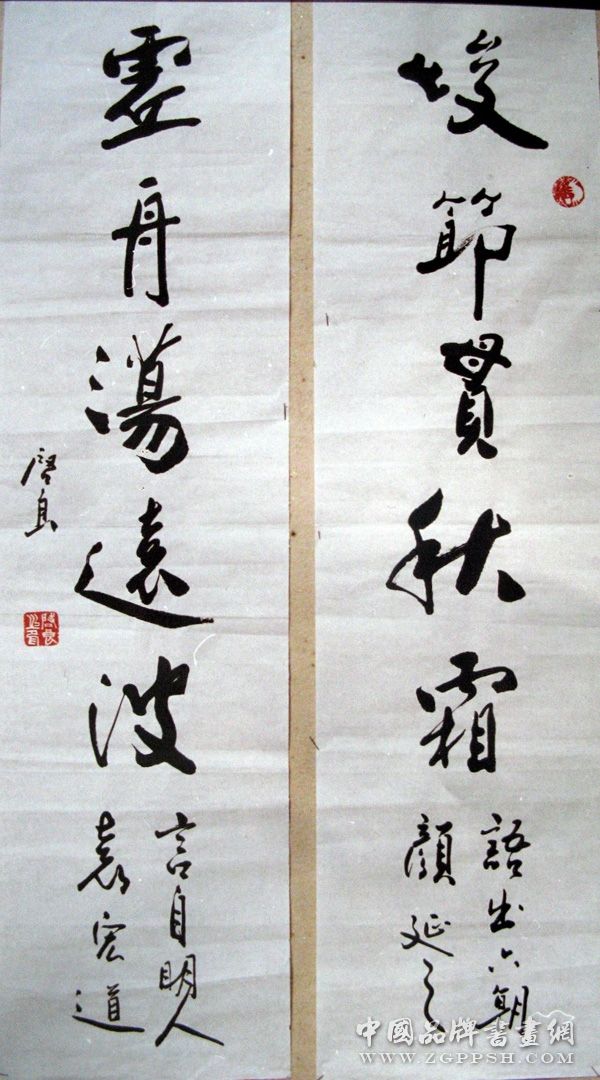 峻節貫秋霜
語出六朝
顏延之
虛舟蕩遠波
言自明人
袁宏道
中國品牌書畫網
WWW.ZGPPSH.COM